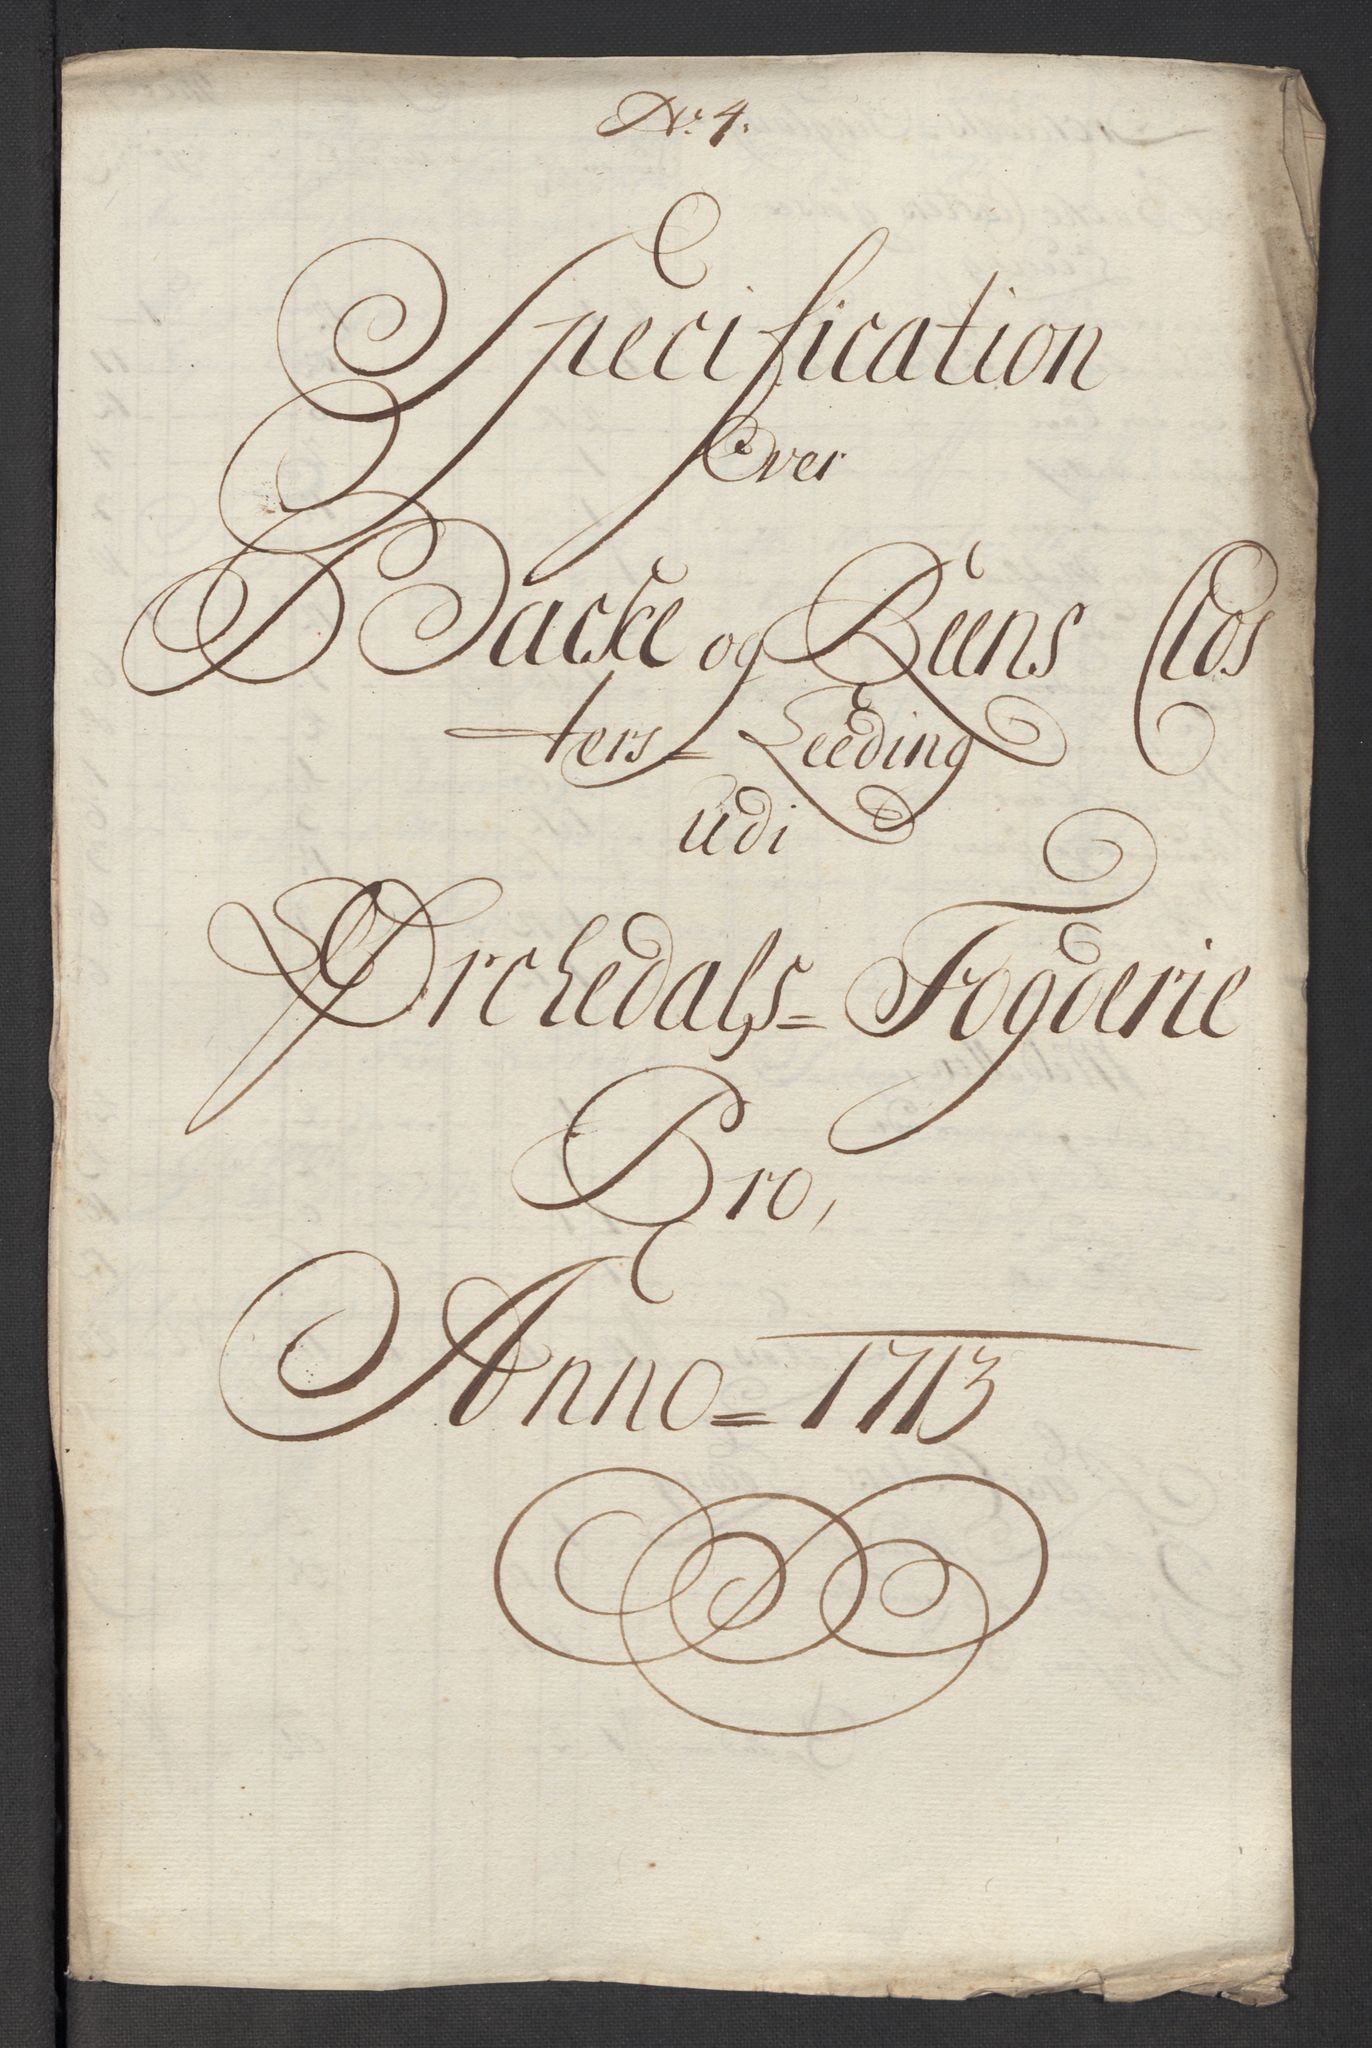 No: 4.
Specification
Over
Backe og Reens Clos
ters = Leeding
udi
Ørchedals = Fogderie
Pro,
Anno = 1713